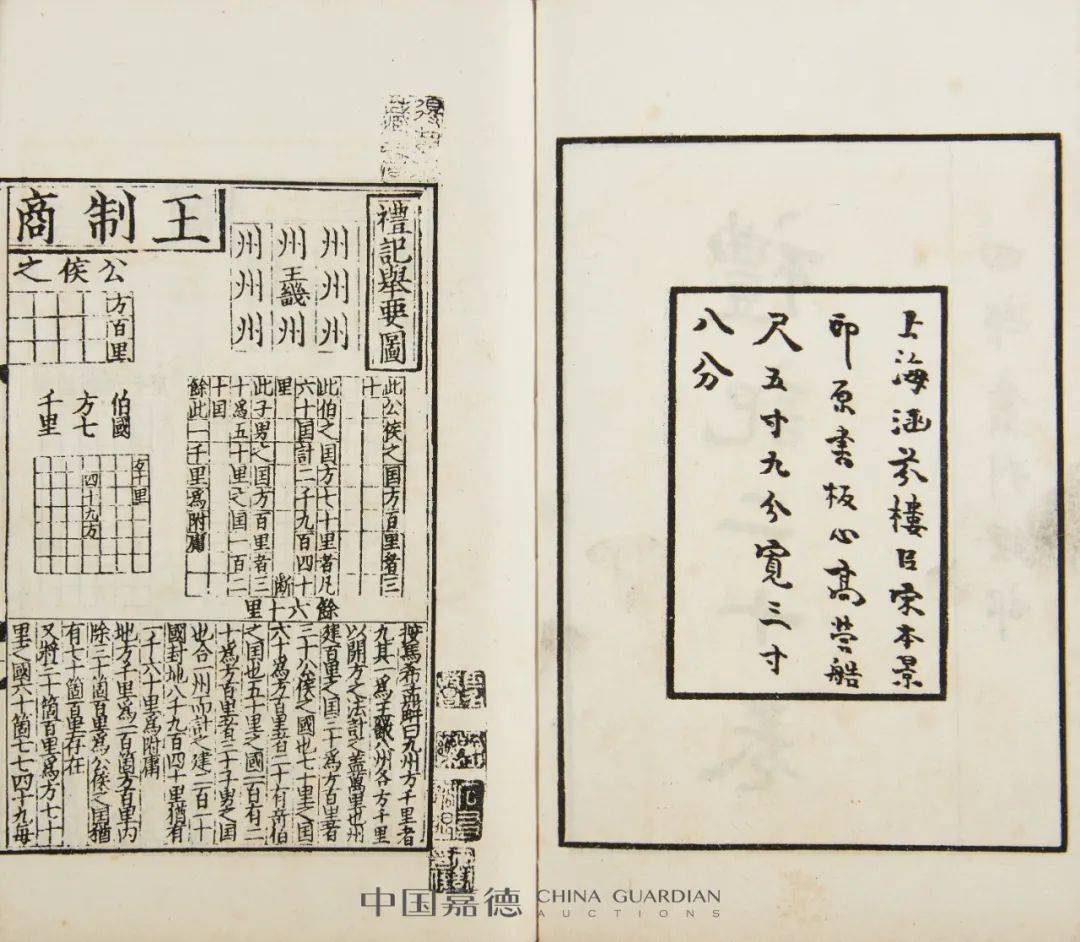 上海涵芬樓㠯宋本景
印原書板心高營艁
尺五寸九分寬三寸
八分
禮記舉要圖
州州州
州王畿州
州州州
王制商
公侯之
方百里
伯國
方七
千里
四十九方
此公侯之囯方百里者三
十
此伯之囯方七十里者凡
六十囯計二千九百四十
里
此子男之囯方百里者三
十爲五十里之囯一百二
十囯
餘此一千里爲附庸
餘六十里
按馬希孟解曰九州方千里者
九其一爲王畿八州各方千里
以開方之法計之盖萬里也州
建百里之国三十爲方百里者
三十公侯之國也七十里之囯
六十爲方百里者二十有奇伯
之国也五十里之國一百有二
十爲方百里者三十子男之囯
也合一州而計之建二百一十
國封地八千九百四十里猶有
一千六十里爲附庸
地方千里爲一百箇方百里内
除三十箇百里爲公侯之国猶
有七十箇百里存在
又將三十箇百里爲方七十
里之國六十箇七七四十九每
中国嘉德 CHINA GUARDIAN
AUCTIONS